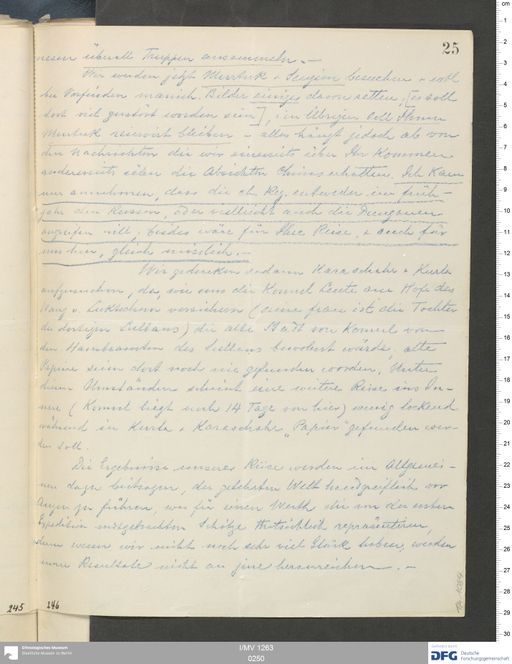 25
nesen überall Truppen ansammeln. —
Wir werden jetzt Murtuk & Sengim besuchen & soll
bei Vorfinden manich. Bilder einiges davon retten, [es soll
dort viel zerstört worden sein], im Übrigen soll Ihnen
Murtuk reservirt bleiben — alles hängt jedoch ab von
den Nachrichten die wir einerseits über Ihr Kommen
andererseits über die Absichten Chinas erhalten. Ich kann
nur annehmen, dass die ch. Reg. entweder im Früh-
jahr den Russen, oder vielleicht auch die Dunganen
angreifen will, beides wäre für Ihre Reise, & auch für
uns hier, gleich misslich. —
Wir gedenken sodann Karaschahr & Kurla
aufzusuchen, da, wie uns die Komul Leute am Hofe des
Wang v. Luktschun versichern (seine Frau ist die Tochter
des dortigen Sultans) die alte Stadt von Komul von
den Hausbeamten des Sultans bewohnt würde, alte
Papiere seien dort noch nie gefunden worden. Unter
diesen Umständen scheint eine weitere Reise ins In-
nere (Komul liegt noch 14 Tage von hier) wenig lockend
während in Kurla & Karaschahr „Papier" gefunden wer-
den soll.
Die Ergebnisse unserer Reise werden im Allgemei-
nen dazu beitragen, der gelehrten Welt handgreiflich vor
Augen zu führen, was für einen Werth die von der ersten
Expedition mitgebrachten Schätze thatsächlich repräsentieren,
denn wenn wir nicht noch sehr viel Glück haben, werden
unsere Resultate nicht an jene heranreichen. —
245
246
Ethnologisches Museum
Staatliche Museen zu Berlin
I/MV 1263
0250
DFG
Deutsche
Forschungsgemeinschaft